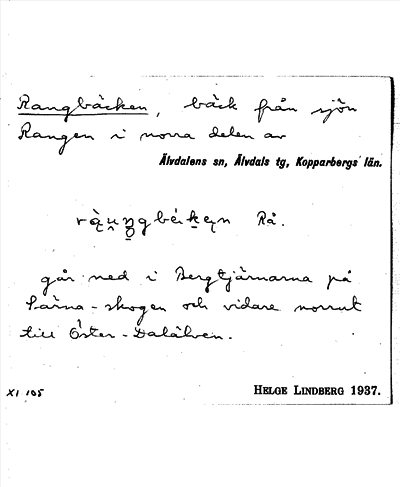 Rangbäcken, bäck från sjön
Rangen i norra delen av
Älvdalens sn, Älvdals tg, Kopparbergs län.
Rå.
går ned i Bergtjärnarna på
Särna-skogen och vidare norrut
till Öster-Dalälven.
XI 105
HELGE LINDBERG 1937.